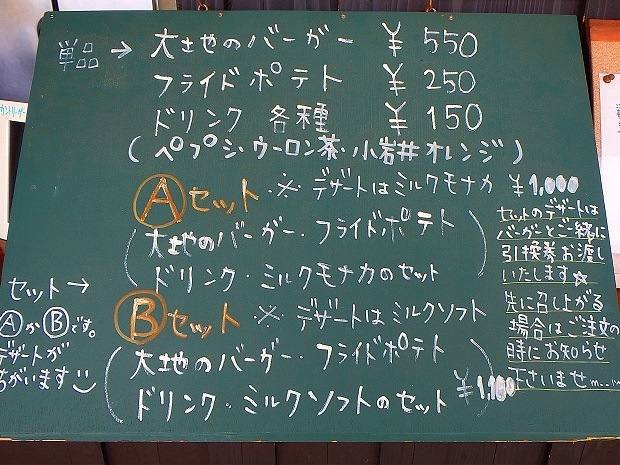 単品 → 大地のバーガー ¥550
フライドポテト ¥250
ドリンク 各種 ¥150
(ペプシ・ウーロン茶・小岩井オレンジ)
Ⓐセット・※・デザートはミルクモナカ ¥1,000
(大地のバーガー・フライドポテト
ドリンク・ミルクモナカのセット)
セット→
ⒶかⒷです。
デザートが
ちがいます
Ⓑセット ※・デザートはミルクソフト
(大地のバーガー・フライドポテト
ドリンク・ミルクソフトのセット) ¥1,100
セットのデザートは
バーガーとご一緒に
引換券お渡し
いたします☆
先に召し上がる
場合はご注文の
時にお知らせ
下さいませm..m